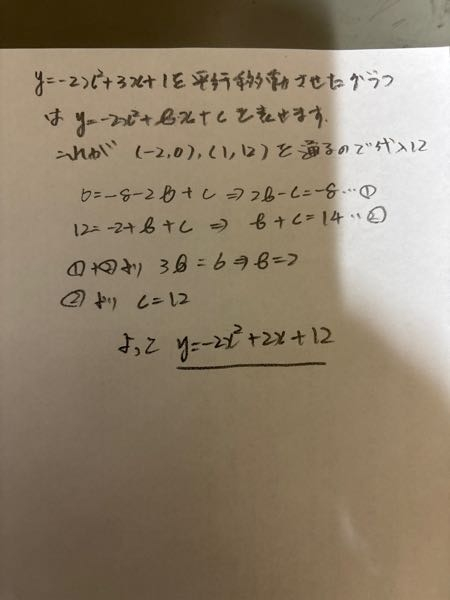 y=-2x²+3x+1を平行移動させたグラフ
は y=-2x²+bx+c と表せます.
これが (-2,0),(1,12) を通るので代入に
0=-8-2b+c ⇒ 2b-c=-8…①
12=-2+b+c ⇒ b+c=14…②
①+②より 3b=6⇒b=2
②より c=12
よって y=-2x²+2x+12